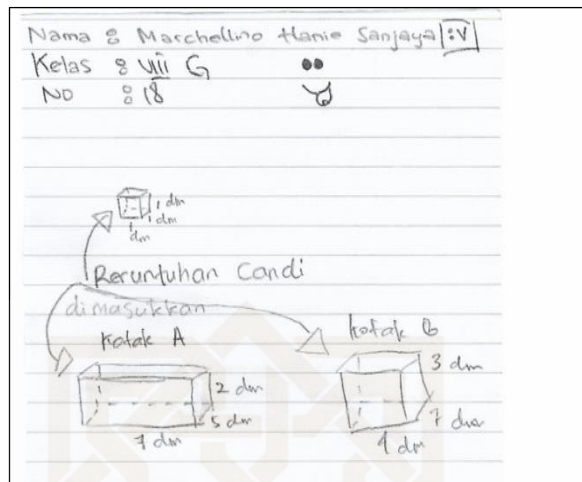 Nama : Marchellino Hanie Sanjaya :v
Kelas : VIII G
No : 18
1 dm
1 dm
1 dm
Reruntuhan Candi
dimasukkan
Kotak A
kotak B
2 dm
5 dm
7 dm
3 dm
7 dm
4 dm